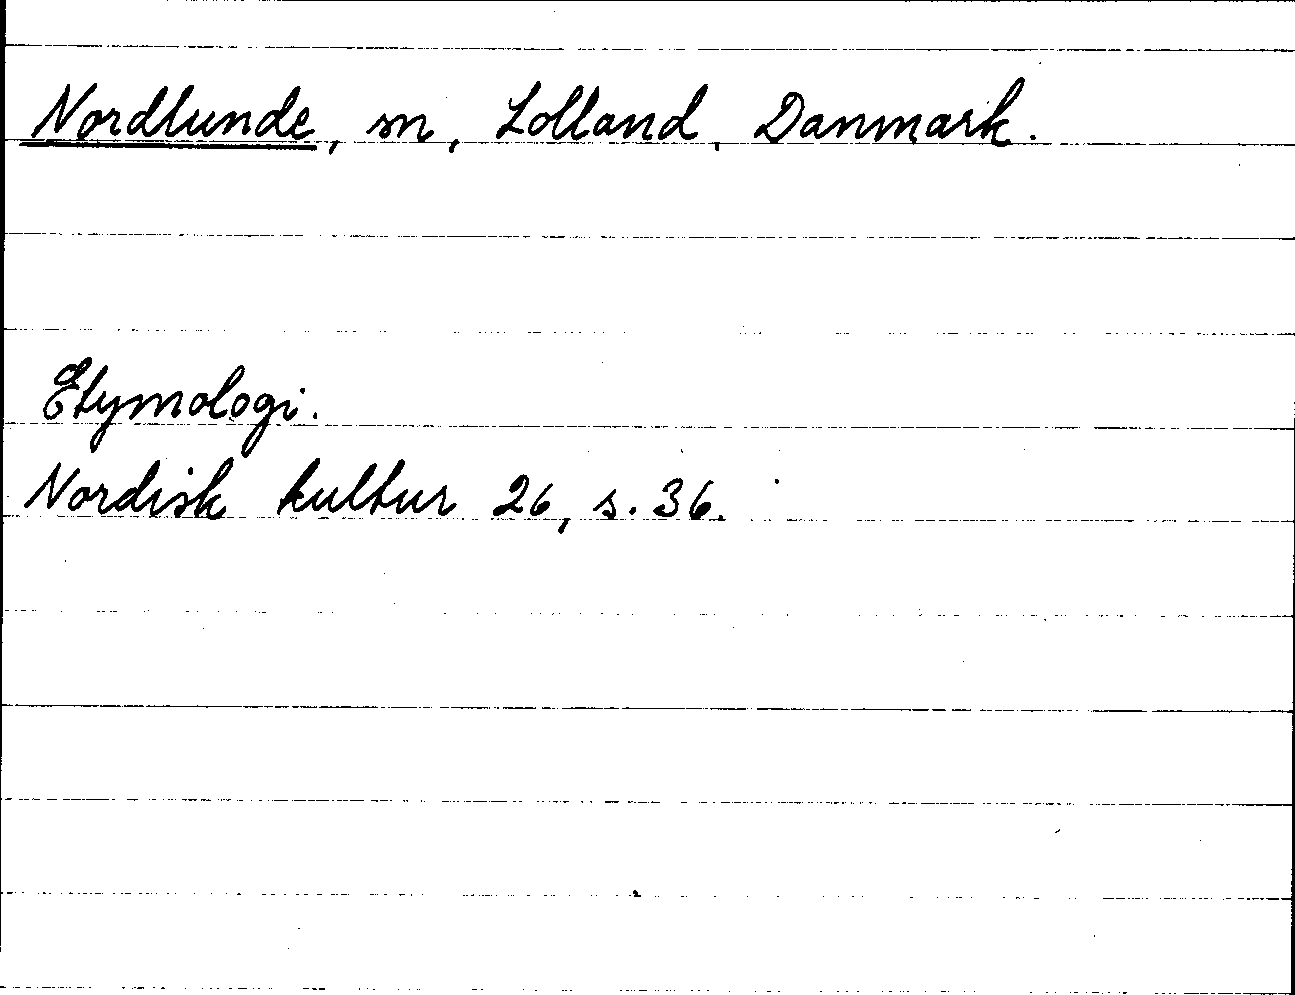 Nordlunde, sn, Lolland, Danmark.
Etymologi.
Nordisk kultur 26, s. 36.